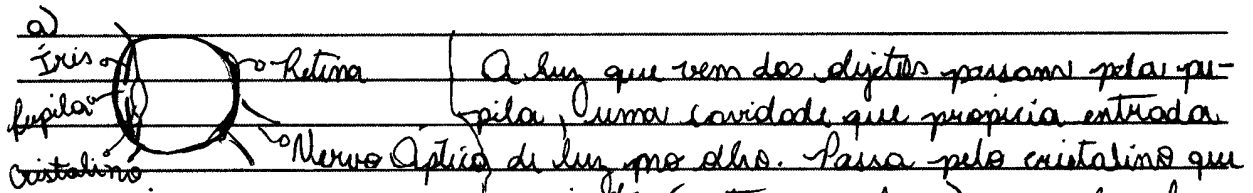 a)
Íris
Retina
pupila
cristalino
Nervo Óptico
A luz que vem dos objetos passam pela pu-
pila, uma cavidade que propicia entrada
de luz no olho. Passa pelo cristalino que